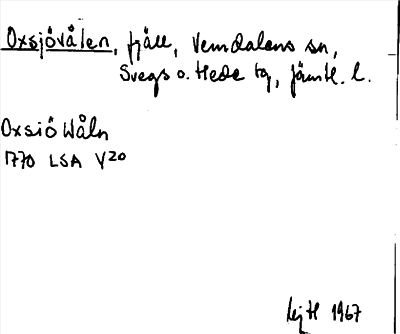 Oxsjövålen, fjäll, Vemdalens sn,
Svegs o. Hede tg, Jämtl. l.
Oxsiö Wåln
1770 LSA V20
1967